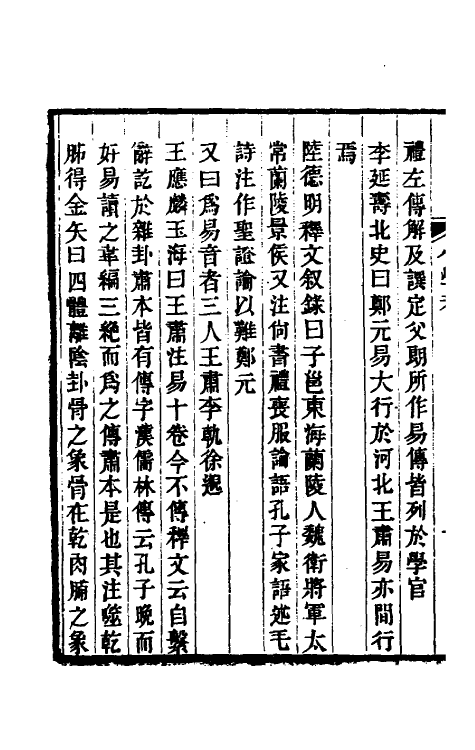 禮左傳解及譔定父朗所作易傳皆列於學官
李延壽北史曰鄭元易大行於河北王肅易亦間行
焉
陸德明釋文叙錄曰子邕東海蘭陵人魏衛將軍太
常蘭陵景侯又注尙書禮喪服論語孔子家語述毛
詩注作聖證論以難鄭元
又曰爲易音者三人王肅李軌徐邈
王應麟玉海曰王肅注易十卷今不傳釋文云自繫
辭訖於雜卦肅本皆有傳字漢儒林傳云孔子晚而
好易讀之韋編三絶而爲之傳肅本是也其注噬乾
胏得金矢曰四體離陰卦骨之象骨在乾肉脯之象